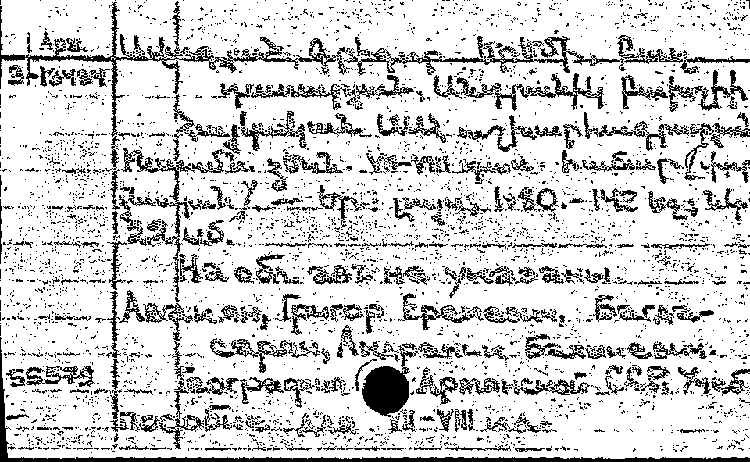 Арм.
Ավագյան, Գրիգոր Երեմ., Բաղ-
3-13494
դասարյան, Անդրանիկ Բախշիի
Հայկական ՍՍՀ աշխարհագրություն
Ուսումն. ձեռն. VII-VIII դաս. համար
Եր.: Լույս, 1980.- 142 էջ; նկ
22 սմ.
На обл. авт. не указаны
Авакян, Григор Еремеевич, Багда-
сарян, Андраник Бахшиевич.
55579
География Армянской ССР. Учеб
пособие для VII-VIII кл.